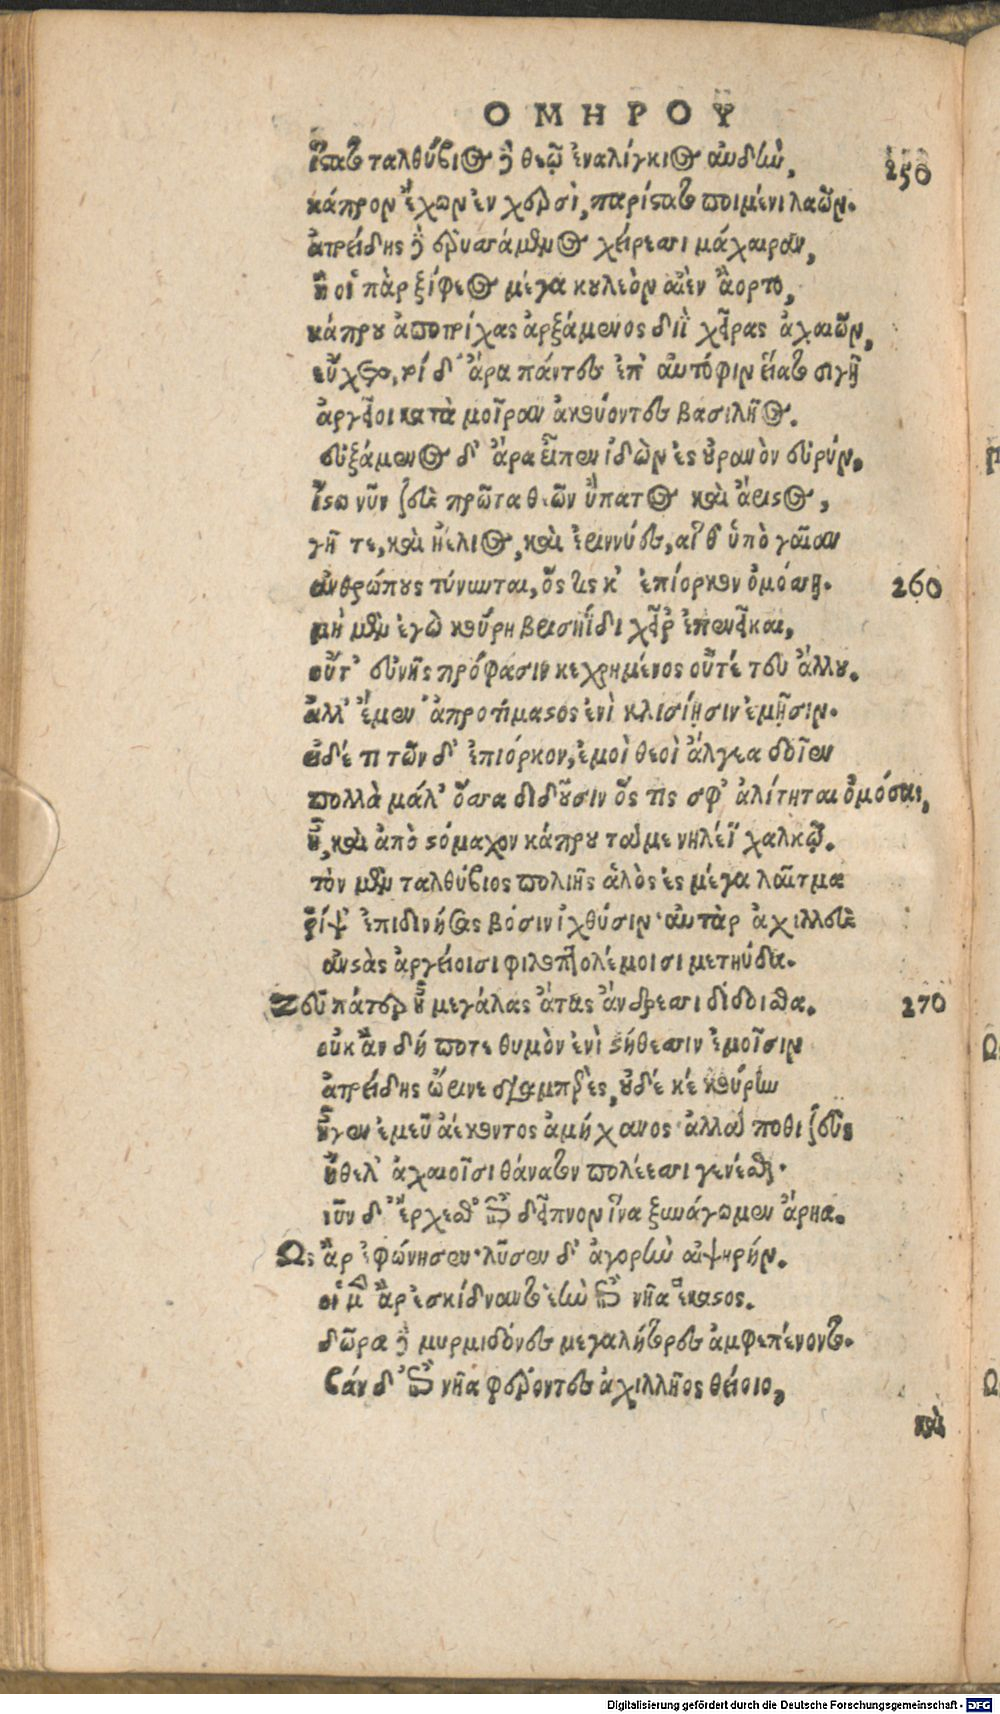 ΟΜΗΡΟΥ
ἵστατο ταλθύβιος δὲ θεῷ ἐναλίγκιος αὐδὴν, 250
κάπρον ἔχων ἐν χερσὶ, παρίστατο ποιμένι λαῶν.
ἀτρείδης δὲ ἐρυσσάμενος χείρεσσι μάχαιραν,
ἥ οἱ πὰρ ξίφεος μέγα κουλεὸν αἰὲν ἄορτο,
κάπρου ἀπο τρίχας ἀρξάμενος διῒ χεῖρας ἀχαιῶν,
εὔχετο, τοί δ' ἄρα πάντες ἐπ' αὐτόφιν εἵατο σιγῇ
ἀργεῖοι κατὰ μοῖραν ἀκούοντες βασιλῆος.
εὐξάμενος δ' ἄρα εἶπεν ἰδὼν ἐς οὐρανὸν εὐρύν.
ἴστω νῦν ζεὺς πρῶτα θεῶν ὕπατος καὶ ἄριστος,
γῆ τε, καὶ ἠέλιος, καὶ ἐριννύες, αἵ θ' ὑπὸ γαῖαν
ἀνθρώπους τίνυνται, ὅς τις κ' ἐπίορκον ὀμόσσῃ. 260
μὴ μὲν ἐγὼ κούρῃ βρισηΐδι χεῖρ' ἐπενεῖκαι,
οὔτ' εὐνῆς πρόφασιν κεχρημένος οὔτέ τευ ἄλλου.
ἀλλ' ἔμεν' ἀπροτίμαστος ἐνὶ κλισίῃσιν ἐμῇσιν.
εἰ δέ τι τῶν δ' ἐπιόρκον, ἐμοὶ θεοὶ ἄλγεα δοῖεν
πολλὰ μάλ' ὅσσα διδοῦσιν ὅς τις σφ' ἀλίτηται ὀμόσας,
ἦ, καὶ ἀπὸ στόμαχον κάπρου τάμε νηλέϊ χαλκῷ.
τὸν μὲν ταλθύβιος πολιῆς ἁλὸς ἐς μέγα λαῖτμα
ῥίψ' ἐπιδινήσας βόσιν ἰχθύσιν· αὐτὰρ ἀχιλλεὺς
ἀνστὰς ἀργείοισι φιλοπτολέμοισι μετηύδα.
Ζεῦ πάτερ ἦ μεγάλας ἄτας ἄνδρεσσι δίδοισθα. 270
οὐκ ἂν δή ποτε θυμὸν ἐνὶ στήθεσσιν ἐμοῖσιν
ἀτρείδης ὤρινε διαμπερὲς, οὐδέ κέ κούρην
ἦγεν ἐμεῦ ἀέκοντος ἀμήχανος· ἀλλά ποθι ζεὺς
ἤθελ' ἀχαιοῖσι θάνατον πολέεσσι γενέσθαι.
νῦν δ' ἔρχεσθ' ἐπὶ δεῖπνον ἵνα ξυνάγωμεν ἄρηα.
Ὣς ἄρ ἐφώνησεν· λῦσεν δ' ἀγορὴν αἰψηρήν.
οἱ μὲν ἄρ ἐσκίδναντο ἑὴν ἐπὶ νῆα ἕκαστος.
δῶρα δὲ μυρμιδόνες μεγαλήτορες ἀμφεπένοντο.
βάν δ' ἐπὶ νῆα φέροντες ἀχιλλῆος θείοιο,
καὶ
Digitalisierung gefördert durch die Deutsche Forschungsgemeinschaft - DFG